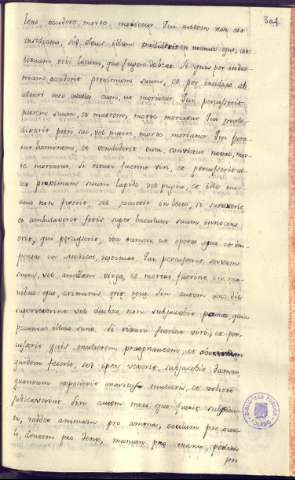 304
lens occidere, morte moriatur. Qui autem non est
insidiatus, sed Deus illum tradidit in manus ejus, cons
tituam tibi locum, quo fugere debeat. Si quis per indus
triam occiderit proximum suum, et per insidias, ab
altari meo evelles eum, ut moriatur. Qui percusserit
patrem suum, et matrem, morte moriatur. Qui
patri suo, vel matri morte moriatur. Qui fura
tus hominem, et vendiderit eum, convictus noxae, mor
te moriatur. Si rixati fuerint viri, et percusserit al
ter proximum suum lapide, vel pugno, et ille mor
tuus non fuerit, sed jacuerit in lecto, si surrexerit,
et ambulaverit foris super baculum suum, innocens
erit, qui percusserit, ita tamen ut operas ejus et im
pensas in medicos restituat. Qui percusserit servum
suum, vel ancillam virga, et mortui fuerint in ma
nibus ejus, criminis reus erit. Sin autem uno die
supervixerint vel duobus, non subjacebit poena, quia
pecunia illius sunt. Si rixati fuerint viri, et per
cusserit quis mulierem praegnantem, et
quidem fecerit, sed ipsa vixerit, subjacebit damno,
quantum expetierit maritus mulieris, et arbitri
judicaverint. Sin autem mors ejus fuerit subsecu
ta, reddet animam pro anima, oculum pro ocu
lo, dentem pro dente, manum pro manu, pedem
pro
BIBLIOTECA PUBLICA
TOLEDO